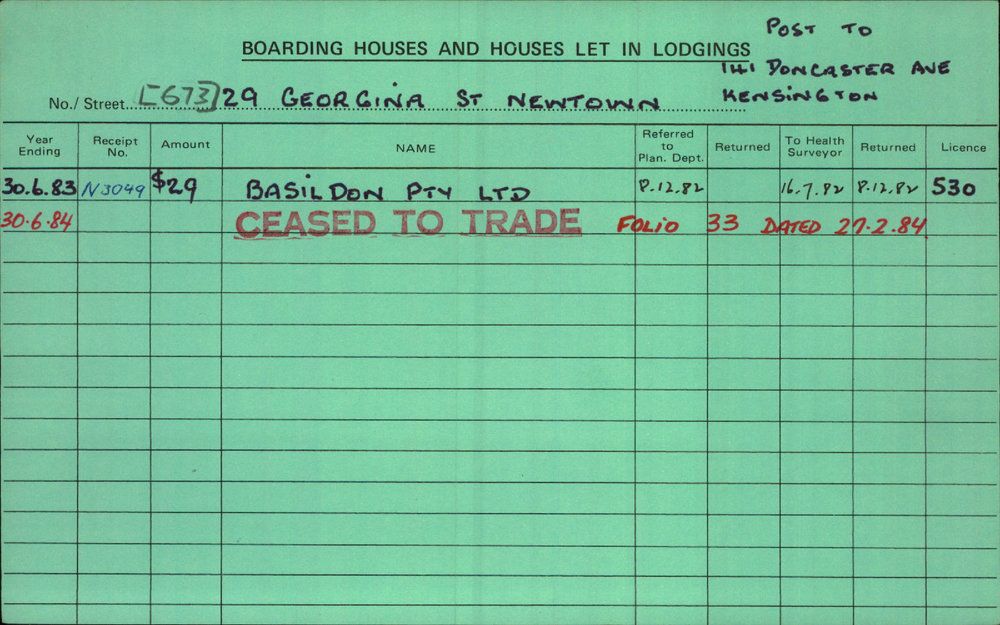 POST TO
BOARDING HOUSES AND HOUSES LET IN LODGINGS
141 DONCASTER AVE
KENSINGTON
No./ Street [673] 29 GEORGINA ST NEWTOWN
Year Ending Receipt No. Amount NAME Referred to Plan. Dept. Returned To Health Surveyor Returned Licence
30.6.83 N3049 $29 BASILDON PTY LTD 8.12.82 16.7.82 8.12.82 530
30.6.84 CEASED TO TRADE FOLIO 33 DATED 27.2.84